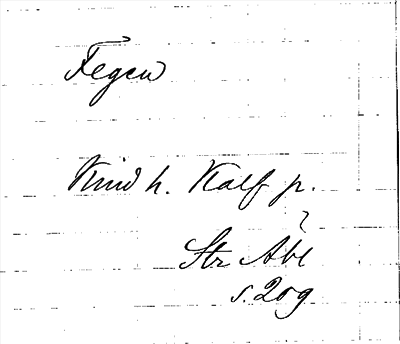 Fegen
Kind h. Kalf p.
?
Str Abl
s. 209